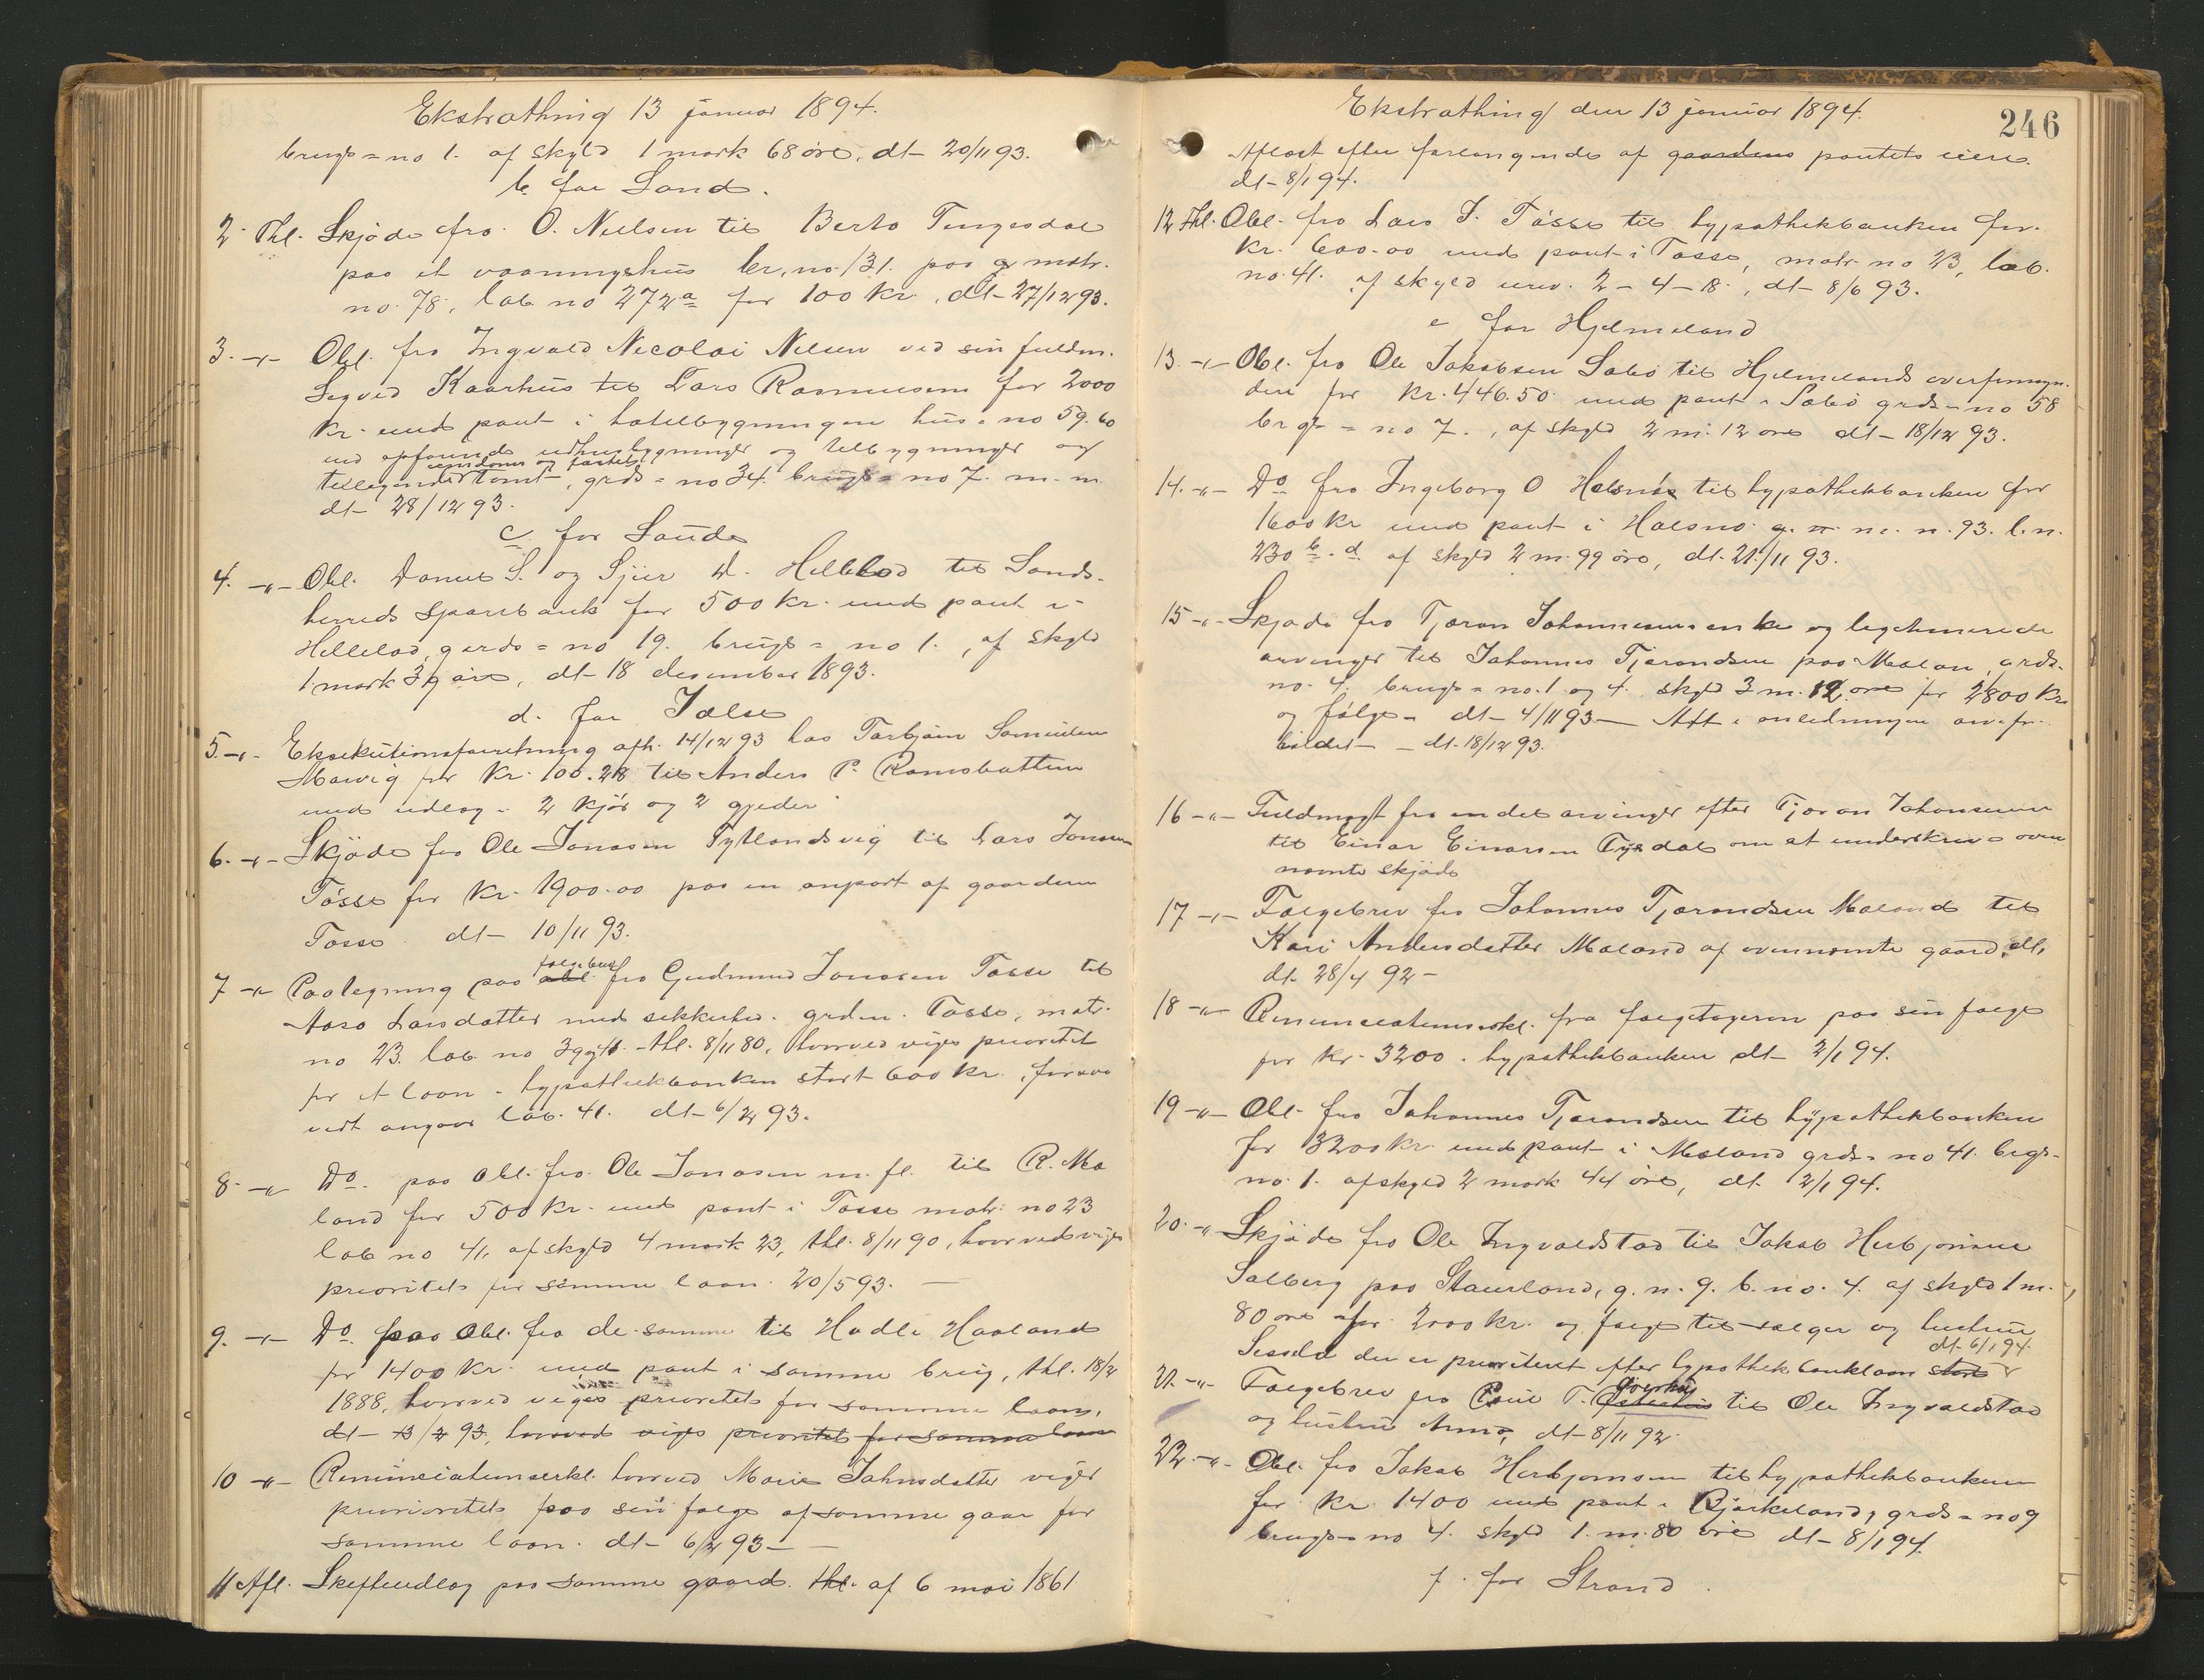 Ekstrathing 13 januar 1894.
brugs=no 1. af skyld 1 mark 68 øre, dt- 20/11 93.
b. for Sand.
2. Thl. Skjøde fra O. Nielsen til Berto Tengesdal
paa et vaaningshus br. no 131. paa g matr.
no. 78, løb no 272a for 100 Kr, dt- 27/12 93.
3. -"- Obl. fra Ingvald Nicolai Nilsen ved sin fuldm.
Kaarhus til Lars Rasmussen for 2000
Kr. med pant i hotelbygningen hus=no 59.60
med udhusbygninger og tilbygninger og
tomt, grds=no 34. brugs=no 7. m. m
dt- 28/12 93.
c for Saude
4. -"- Obl. Daniel S. og D. Helleland til Sands-
herreds sparebank for 500 Kr. med pant i
gards=no 19. brugs=no 1., af skyld
1 mark 39 øre, dt- 18 desember 1893.
d. for Jælse
5. -"- Eksekutionsforretning afh. 14/12 93 hos Torbjørn
for Kr. 100.28 til Anders P. Ramsbotten
med udlæg i 2 kjør og 2 gjeder
6. -"- Skjøde fra Ole Jonasen Tytlandsvig til Lars Jonasen
Tøsse for Kr. 1900.00 paa en anpart af gaarden
Tøsse dt- 10/11 93.
7 -"- Paategning paa obl. folgebrev fra Gudmund Jonasen Tøsse til
Larsdatter med sikkerhed i grden Tøsse, matr.
no 23. løb no -thl. 8/11 80, hvorved viges prioritet
for et laan i hypothekbanken stort 600 Kr.,
vidt angaar løb. 41. dt- 6/2 93.
8. -"- Do. paa obl. fra Ole Jonasen m. fl. til R. Mæ
land for 500 Kr. med pant i Tøsse matr. no 23
løb no 41, af skyld 4 mark 23, thl. 8/11 90, hvorved viges
prioritet for samme laan. 20/5 93.
9. -"- Do. paa obl. fra de samme til Hadle Haaland
for 1400 Kr. med pant i samme brug, thl. 18/2
1888, hvorved viges prioritet for samme laan,
dt- 13/2 93, hvorved viges prioritet for samme laan
10 -"- Renunciationserkl. hvorved Marie Johnsdatter viger
prioritet paa sin følge af samme gaar for
samme laan. dt- 6/2 93-
11 Afl. Skifteudlæg paa samme gaard. thl. af 6 mai 1861
Ekstrathing den 13 januar 1894.
246
Aflæst efter forlangende af gaardens pantets eiere.
dt- 8/1 94.
12 Thl. Obl. fra Lars J. Tøsse til hypothekbanken for
Kr. 600.00 med pant i Tøsse, matr. no 23, løb.
no. 41. af skyld urev. 2-4-18., dt- 8/6 93.
e for Hjelmeland
13. -"- Obl. fra Ole Jakobsen Søbø til Hjelmelands overformyn-
deri for Kr. 446.50 med pant i Søbø grds=no 58
brgs=no 7., af skyld 2 m. 12 øre dt- 18/12 93.
14. -"- Do fra Ingeborg O Halsnøs til hypothekbanken for
1600 Kr med pant i Halsnø g. m. n. 93. l. n.
230 b. d. af skyld 2 m. 99 øre, dt. 21./11 93.
15 -"- Skjøde fra Tjæran Johannesens enke og legitimerede
arvinger til Johannes Tjærandsen paa Mælan, grds.
no. 4, brugs=no. 1 og 4. skyld 3 m. 12 øre for 2800 Kr
og følge- dt- 4/11 93- Att i anledningen
- dt. 18/12 93.
16 -"- Fuldmagt fra endel arvinger efter Tjæran Johannesen
til Einar Einarsen Tysdal om at underskrive oven
nævnte skjøde
17 -"- Følgebrev fra Johannes Tjærandsen Mæland til
Kari Andersdatter Mæland af ovennævnte gaard,
dt- 28/4 92-
18 -"- Renunciationserkl. fra følgetageren paa sin følge
for Kr. 3200 i hypothekbanken dt- 2/1 94.
19 -"- Obl. fra Johannes Tjærandsen til hypothekbanken
for 3200 Kr. med pant i Mæland grds=no 41. brgs-
no. 1. af skyld 2 mark 44 øre, dt. 2/1 94.
20. -"- Skjøde fra Ole Ingvaldstad til Jakob Herbjørnsen
Salberg paa Staurland, g. n. 9. b. no. 4. af skyld 1 m.
80 øre for 2000 Kr. og følge til sælger og hustru
der er prioriteret efter hypothekbanklaan stort dt- 6/1 94.
21. -"- Følgebrev fra T. til Ole Ingvaldstad
og hustru Anna, dt- 8/11 92.
22. -"- Obl. fra Jakob Herbjørnsen til hypothekbanken
for Kr. 1400 med pant i Bjørkeland, grds=no 9
brugs=no 4. skyld 1. m. 80 øre dt- 8/1 94.
f. for Strand.